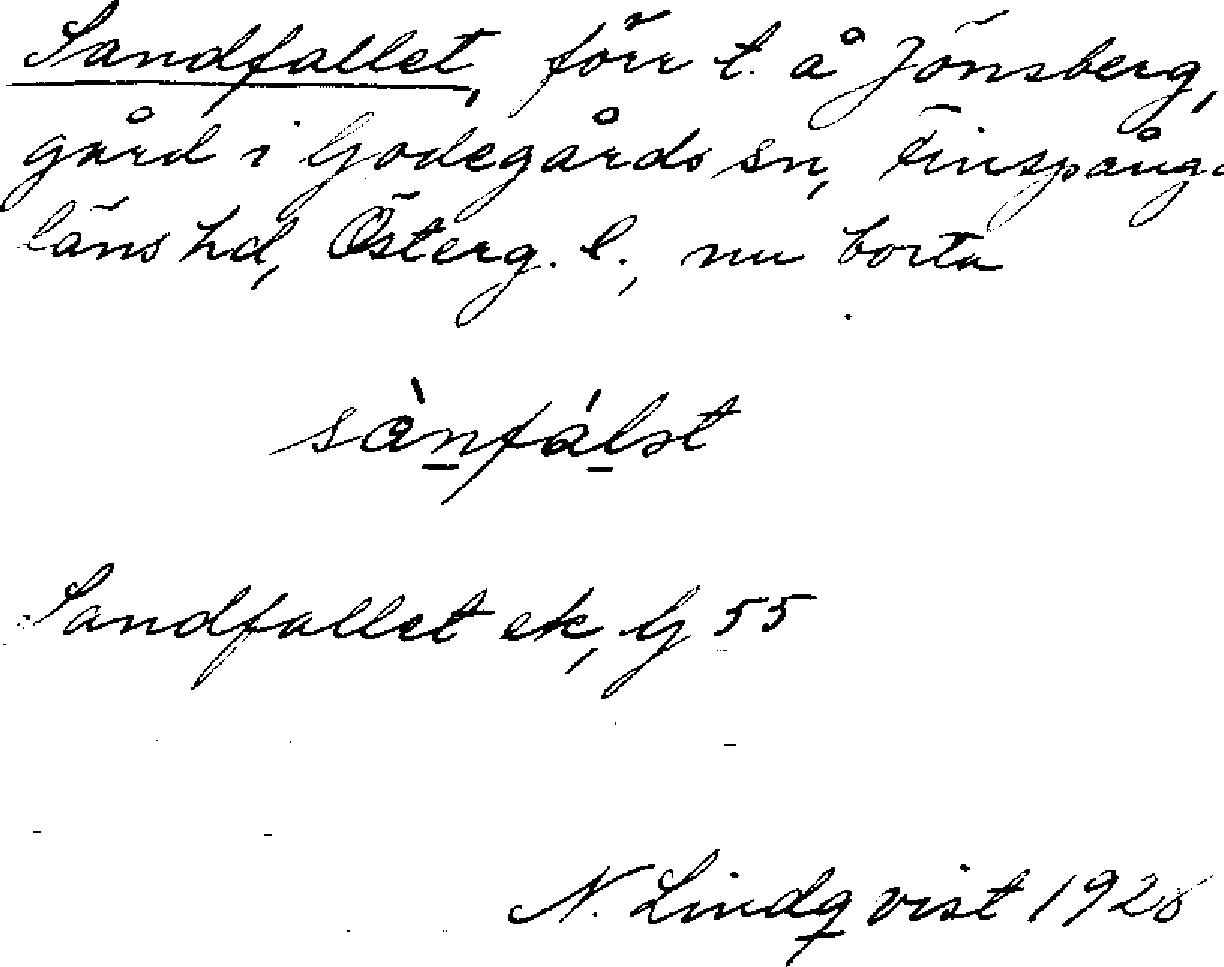 Sandfallet, förr t. å Jönsberg,
gård i Godegårds sn, Finspånga
läns hd, Österg. l., nu borta
sànfálət
Sandfallet ek, G 55
N. Lindqvist 1926